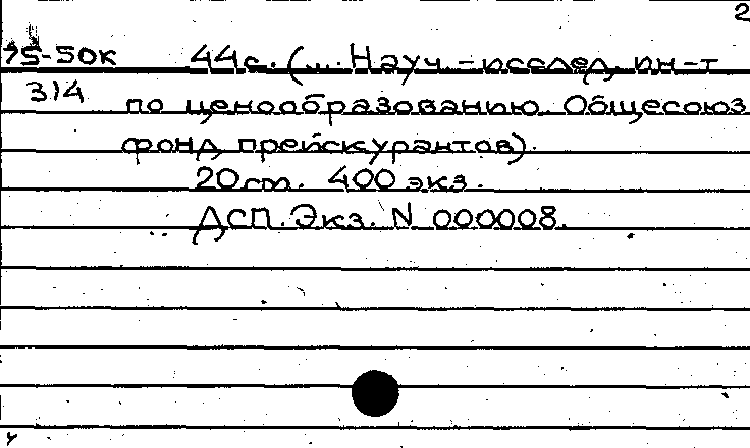 2
75-50к 44 с. (... Науч.-исслед. ин-т
314 по ценообразованию. Общесоюз.
фонд прейскурантов).
20 см. 400 экз.
ДСП. Экз. N 000008.